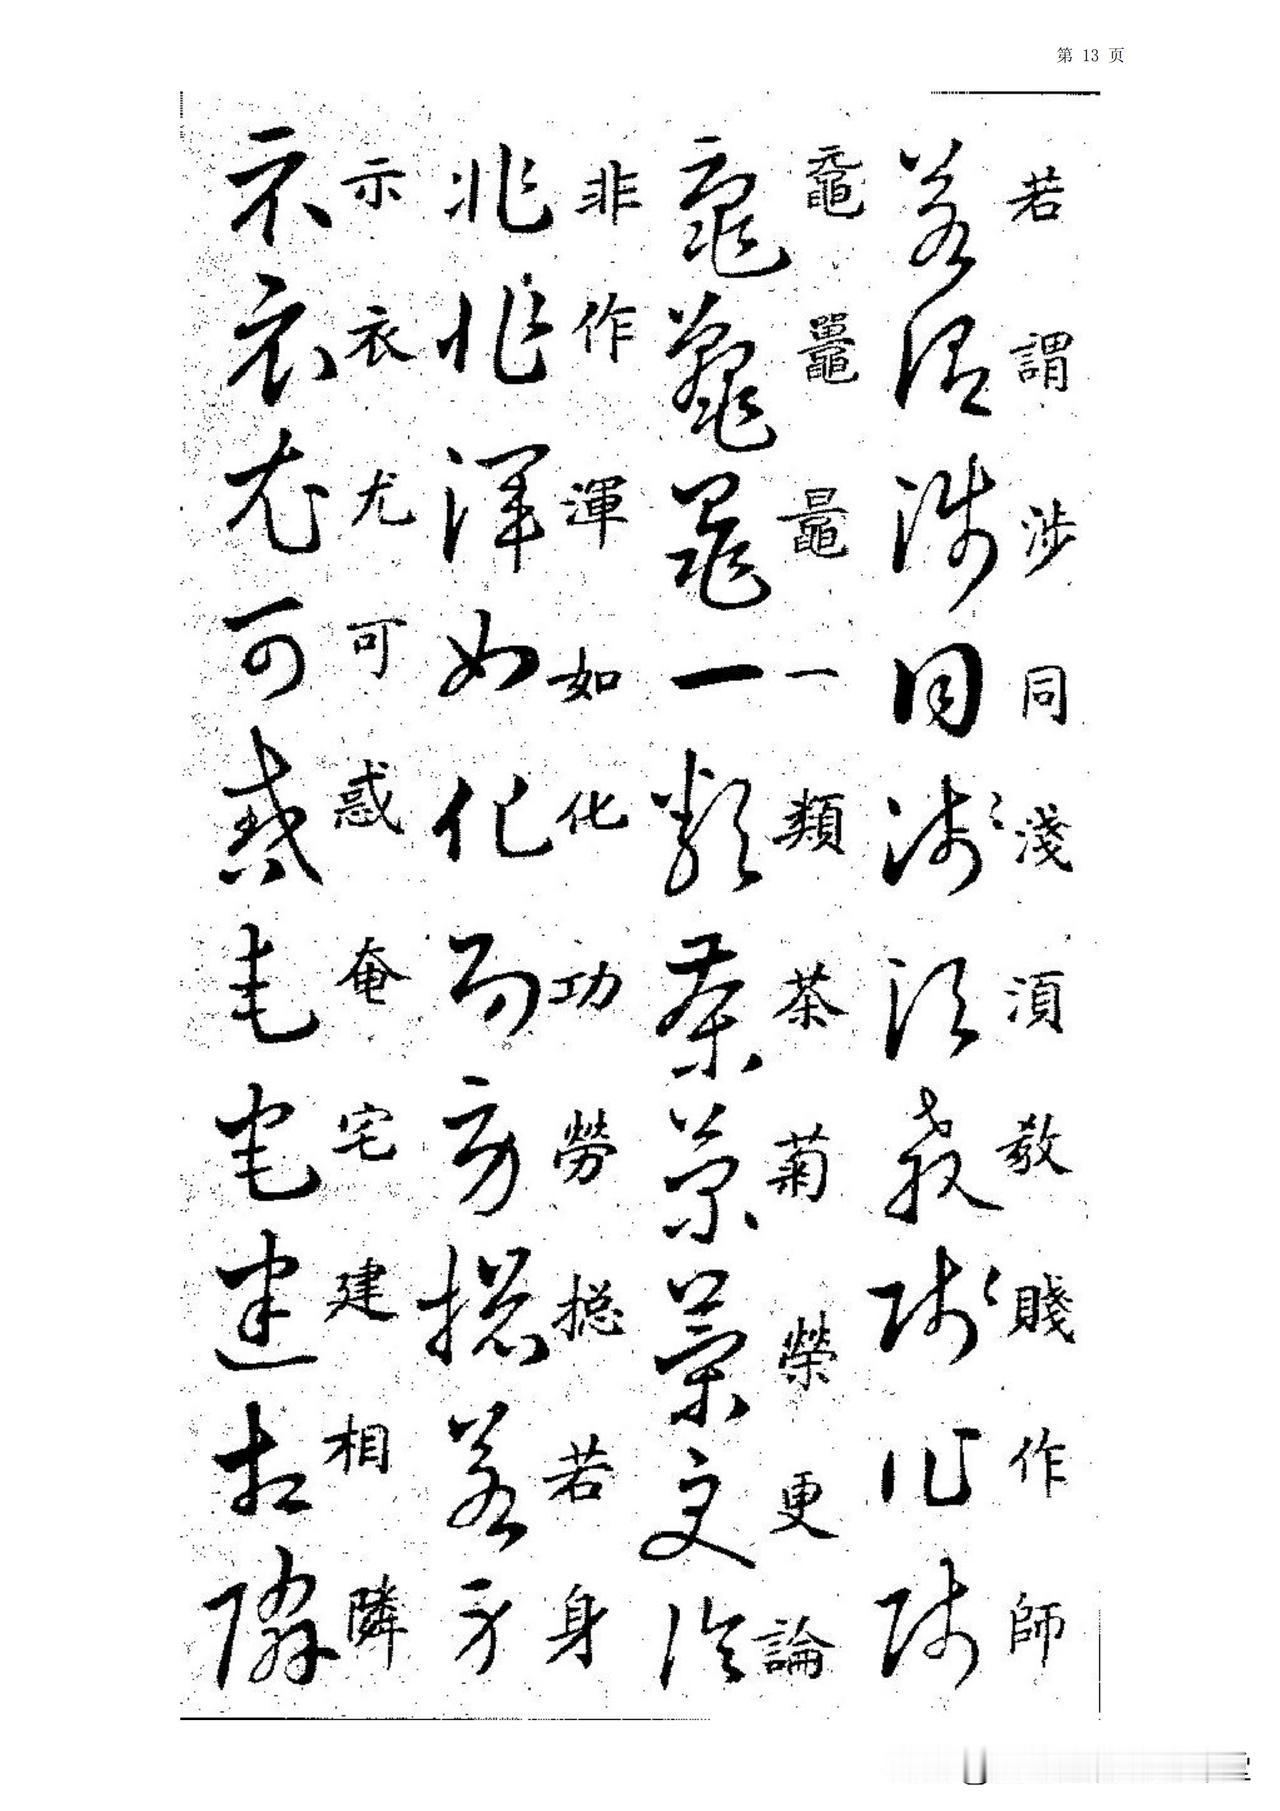 第 13 页
若謂涉同淺湏教賤作師
黿鼉鼂一類茶菊榮更論
非作渾如化功勞摠若身
示衣尤可惑奄宅建相隣